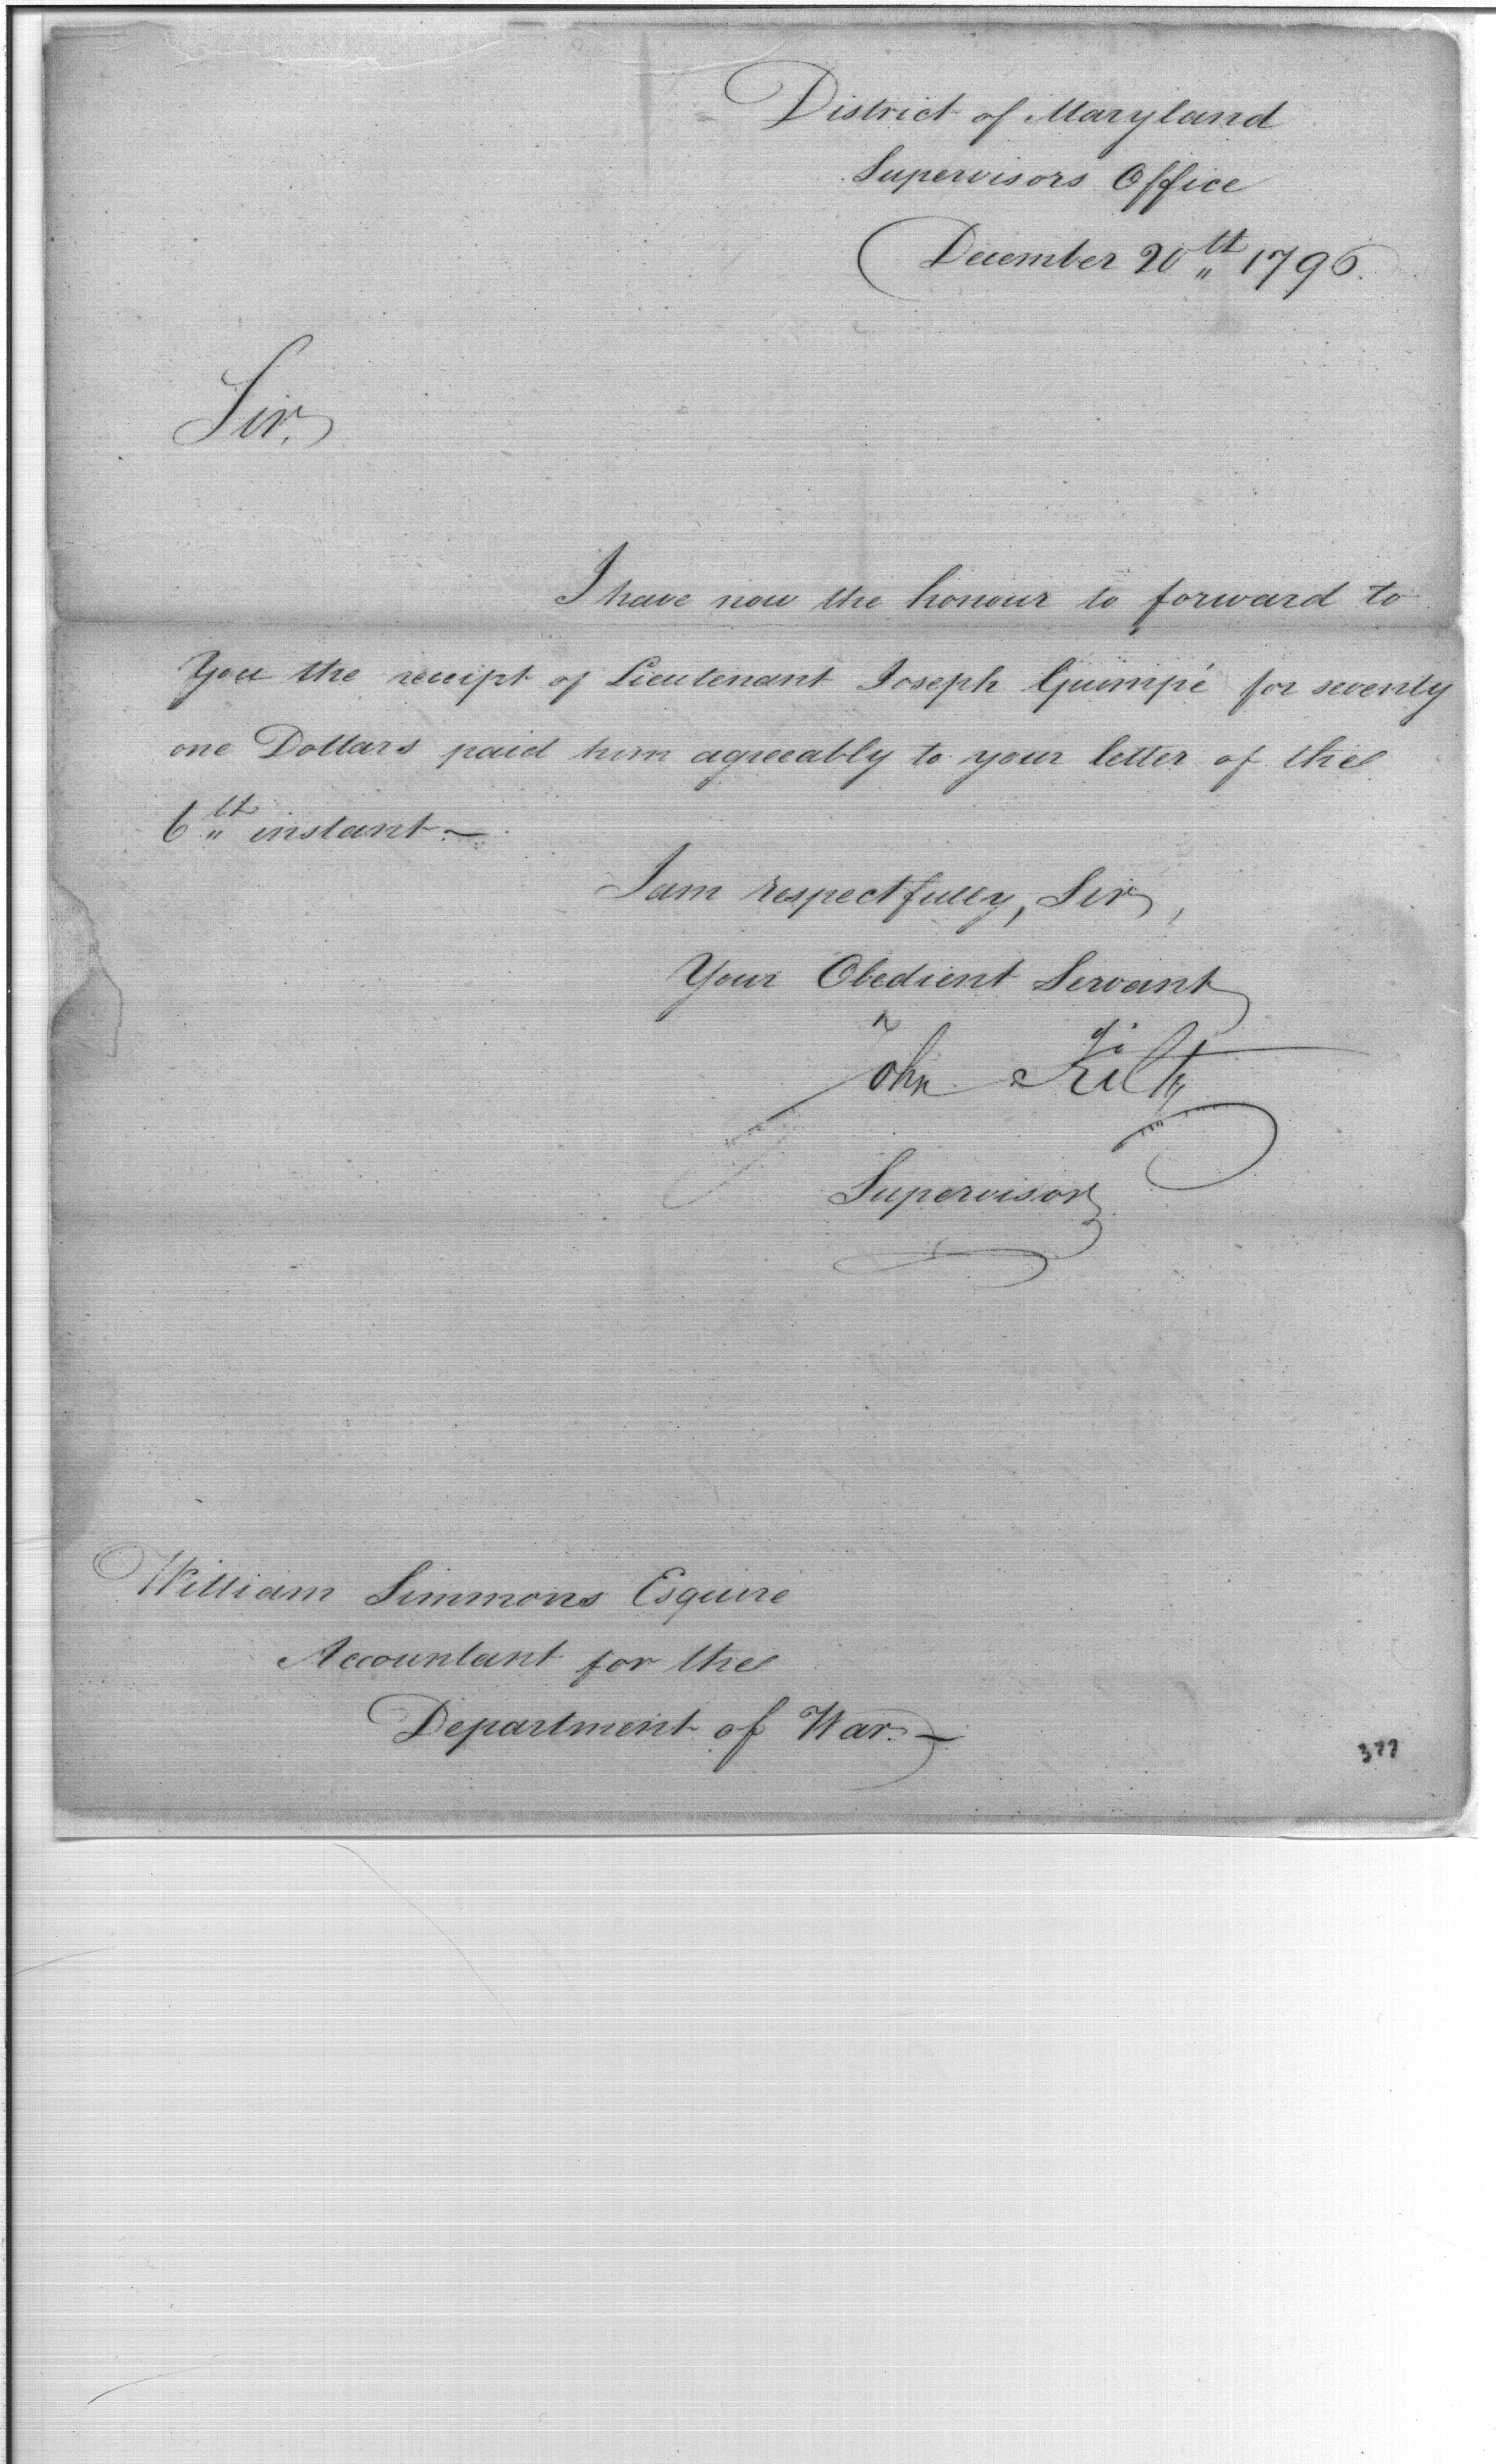 District of Maryland
Supervisors Office
December 20th 1796.
Sir,
I have now the honour to forward to
You the receipt of Lieutenant Joseph Guimpé for seventy
one Dollars paid him agreeably to your letter of the
6th instant —
I am respectfully, Sir,
Your Obedient Servant
John Kilty
Supervisor
William Simmons Esquire
Accountant for the
Department of War. —
377